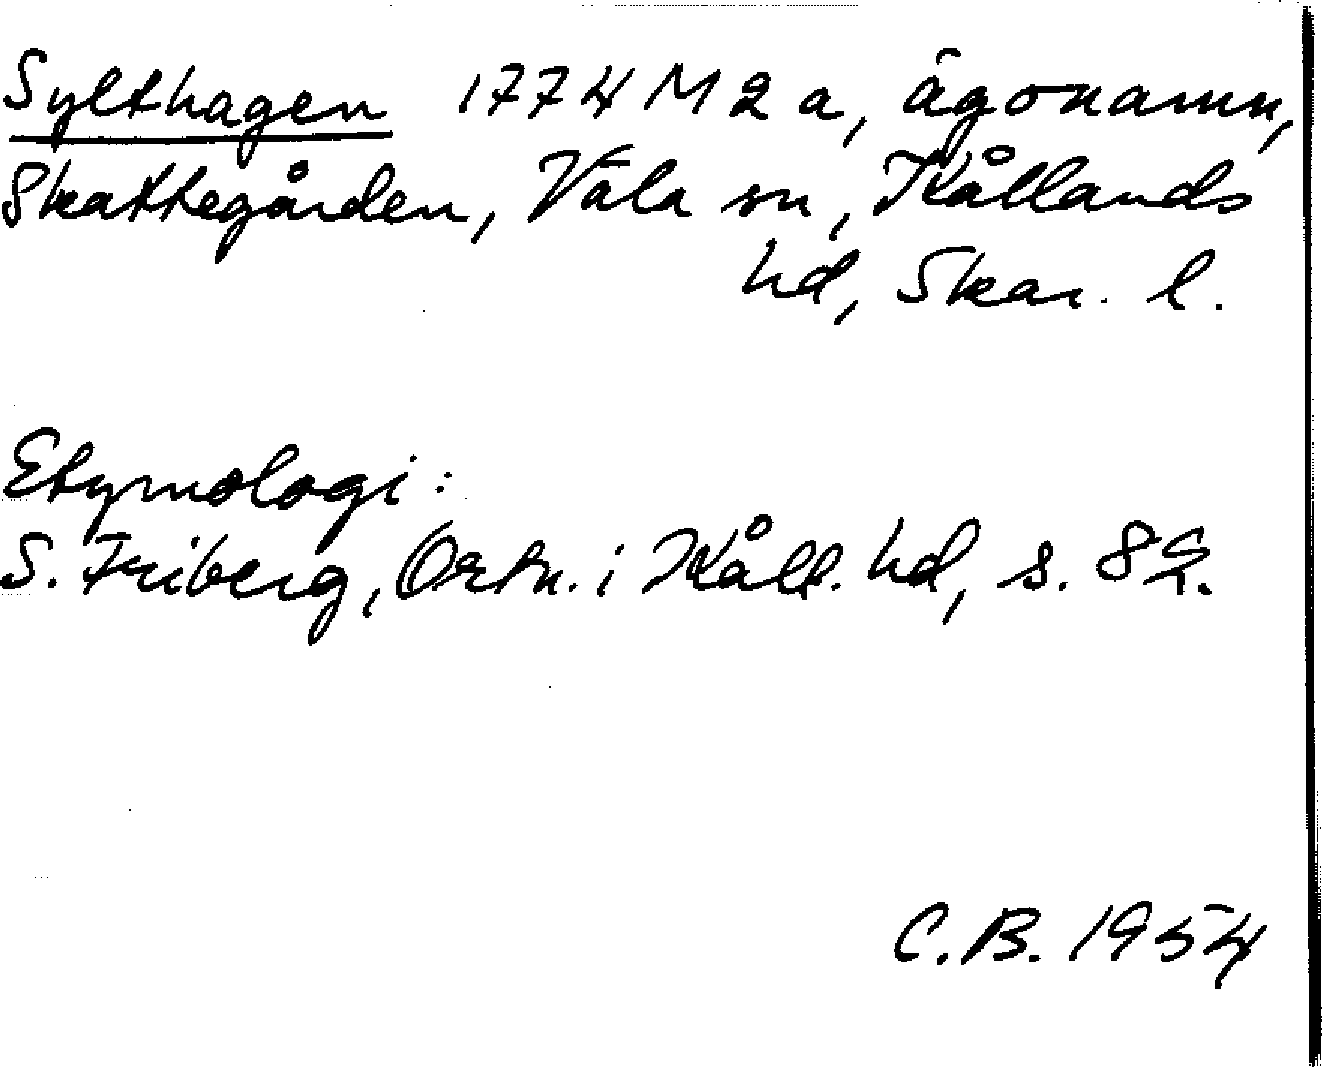 Sylthagen 1774 M 2 a, ägonamn,
Skattegården, Väla sn, Kållands
hd, Skar. l.
Etymologi:
S. Friberg, Ortn. i Kåll. hd, s. 82.
C.B. 1954